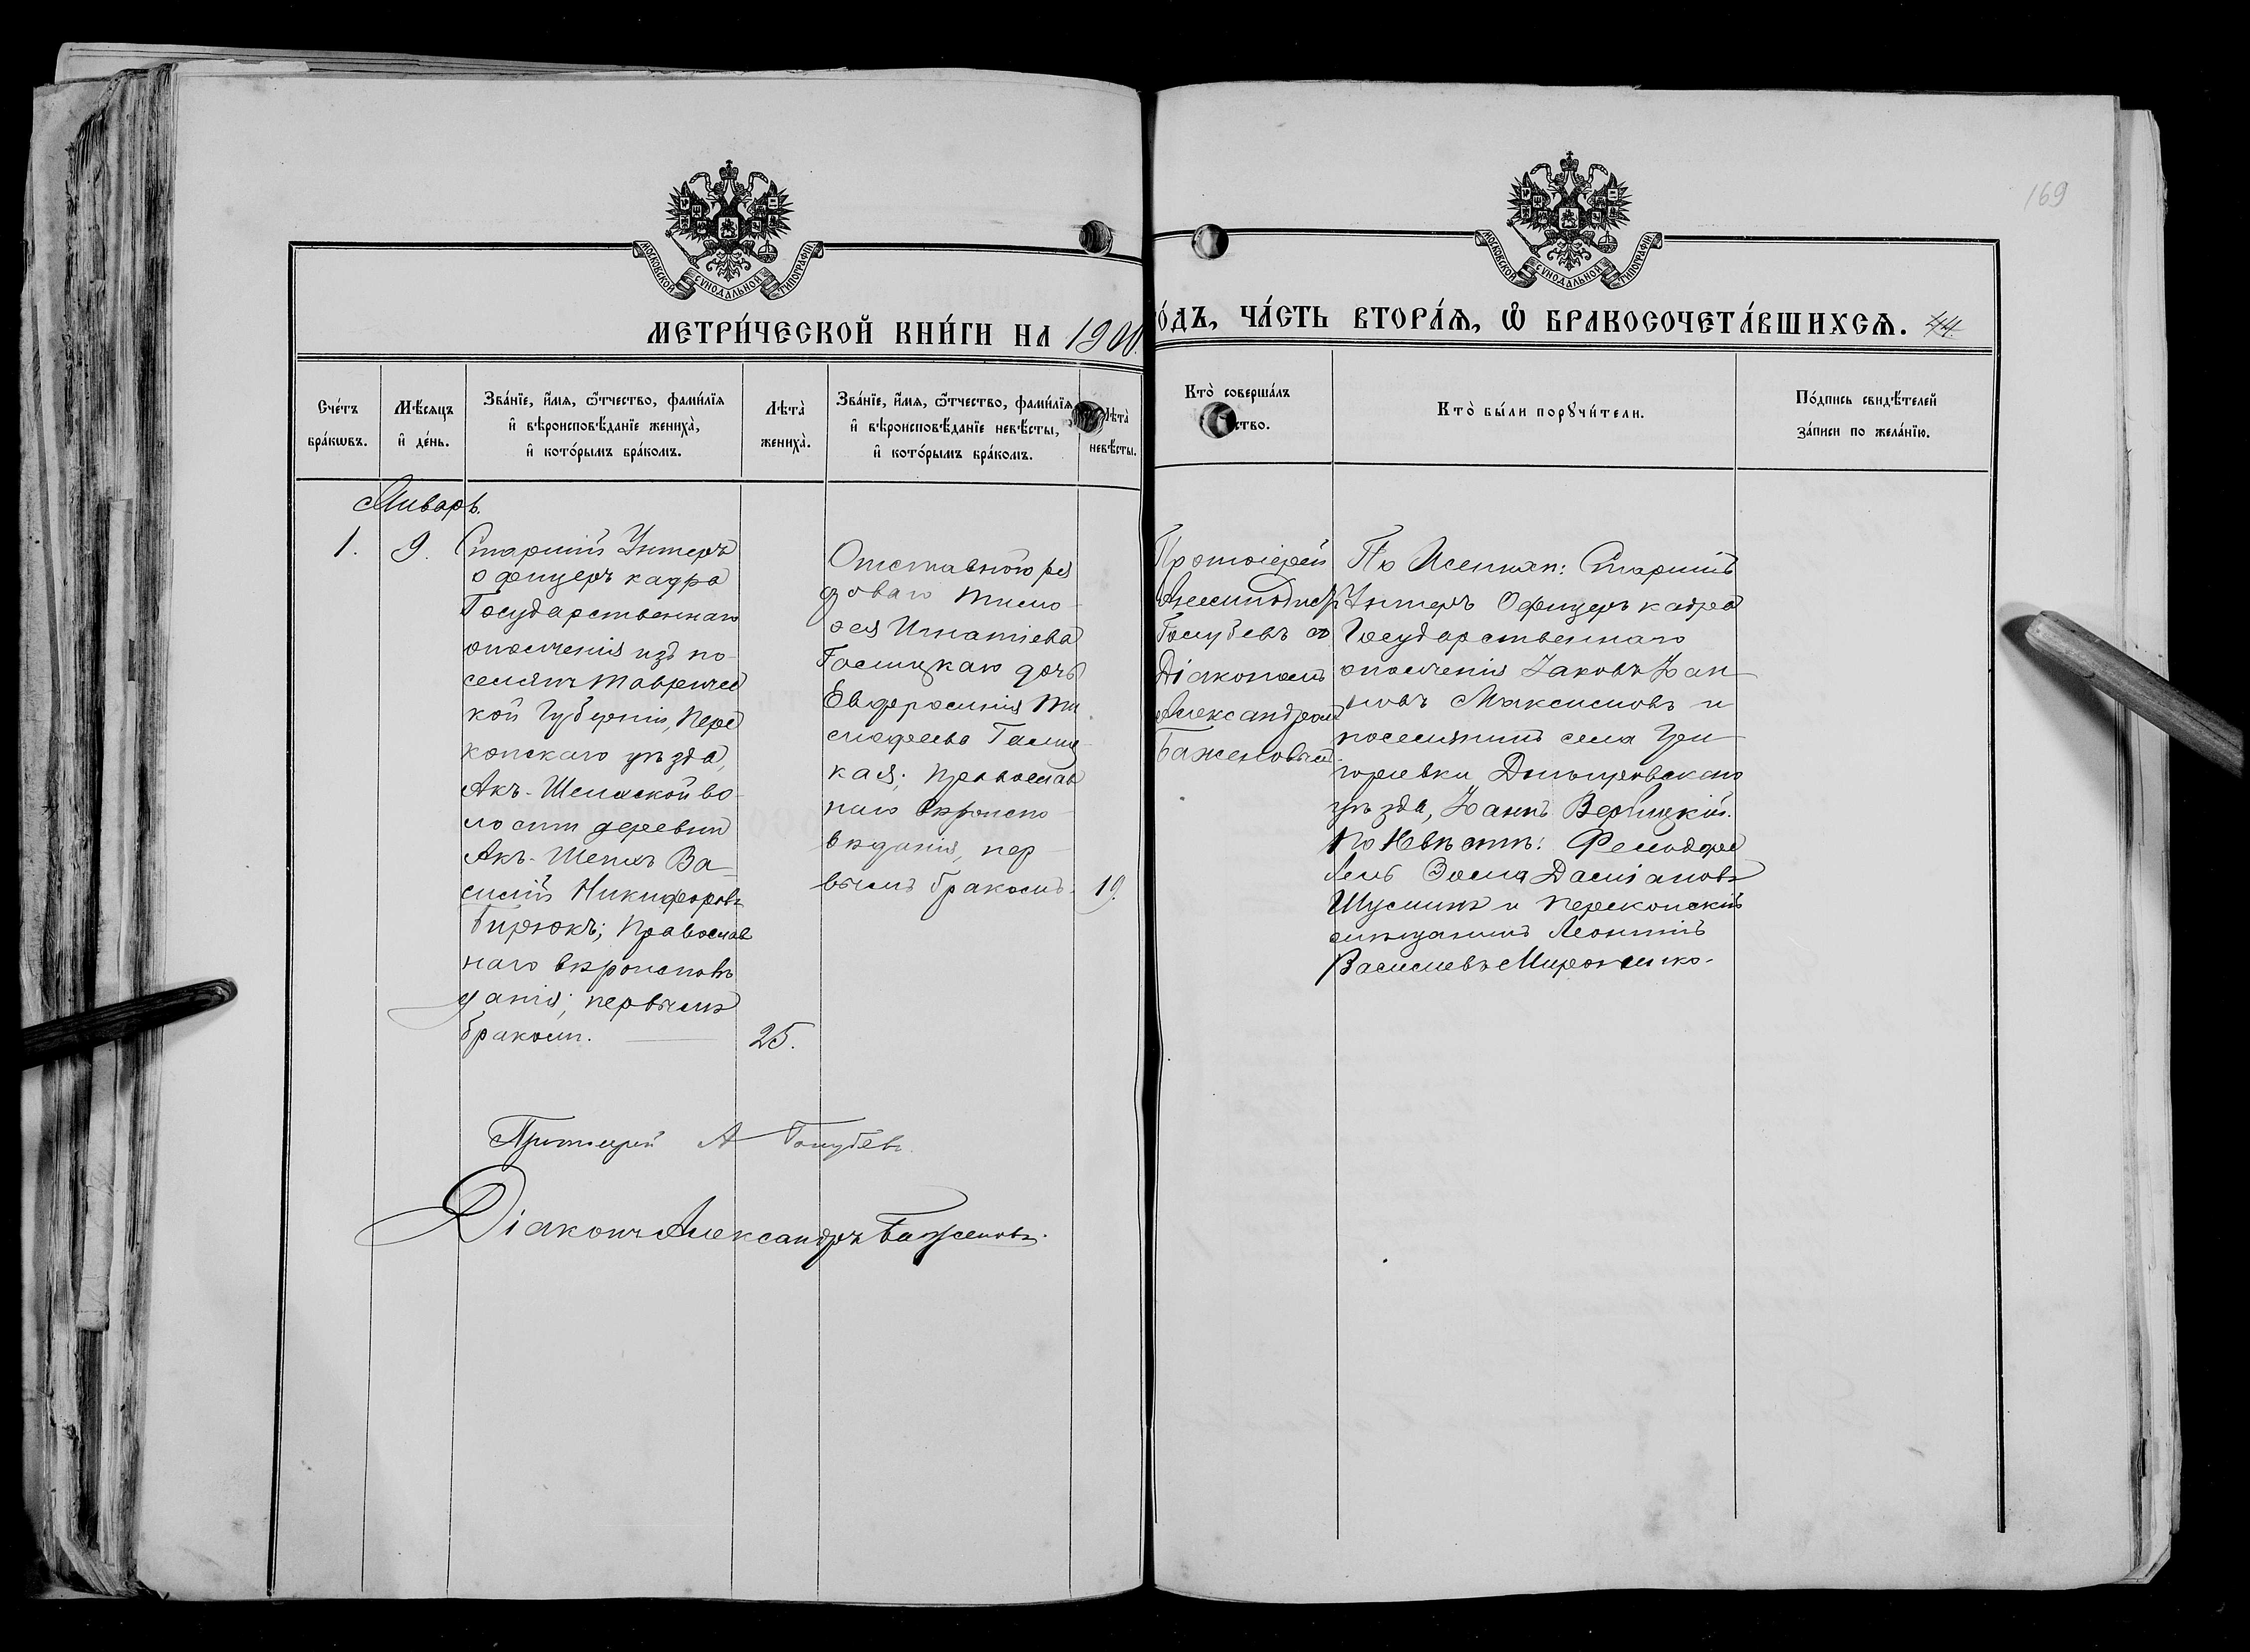 169
МОСКОВСКОЙ СѴНОДАЛЬНОЙ ТИПОГРАФІИ
МОСКОВСКОЙ СѴНОДАЛЬНОЙ ТИПОГРАФІИ
МЕТРИ́ЧЕСКОЙ КНИ́ГИ НА 1900.
О́ДЪ, ЧА́СТЬ ВТОРА́Ѧ, Ѡ҆ БРАКОСОЧЕТА́ВШИХСѦ. 44
Сче́тъ
бра́кѡвъ.
Мѣ́сѧцъ
и҆ де́нь.
Зва́нїе, и҆́мѧ, ѻ҆́тчество, фами́лїѧ
и҆ вѣроисповѣ́данїе жениха̀,
и҆ кото́рымъ бра́комъ.
Лѣта̀
жениха̀.
Зва́нїе, и҆́мѧ, ѻ҆́тчество, фами́лїѧ
и҆ вѣроисповѣ́данїе невѣ́сты,
и҆ кото́рымъ бра́комъ.
Лѣта̀
невѣ́сты.
Кто̀ соверша́лъ
ство.
Кто̀ бы́ли порꙋчи́тели.
По́дпись свидѣ́телей
за́писи по жела́нїю.
Январь.
1.
9.
Старшій Унтеръ
офицеръ кадра
Государственнаго
ополченія изъ по-
селянъ Тавричес
кой Губерніи, Пере
копскаго уѣзда,
Акъ-Шеихской во-
лости деревни
Акъ-Шеихъ Ва-
силій Никифоровъ
Бирюкъ; Православ
наго вѣроисповѣ
данія; первымъ
бракомъ.
25.
Отставного ря
дового Тимо-
фея Игнатіева
Галицкаго дочь
Евфросинія Ти
мофеева Галиц-
кая; Православ
наго вѣроиспо-
вѣданія, пер-
вымъ бракомъ.
19.
Протоіерей
Голубевъ съ
Діакономъ
Александромъ
Баженовымъ
По Женихѣ: Старшій
Унтеръ Офицеръ кадра
Государственнаго
ополченія Іаковъ Іан-
новъ Максимовъ и
поселянинъ села Гри-
горьевки Днѣпровскаго
уѣзда, Іаннъ Вербицкій.
По Невѣстѣ: Фельдфе
бель Зосима Даміановъ
Шуминъ и Перекопскій
мѣщанинъ Леонтій
Васильевъ Мироненко.
Протоіерей А Голубевъ.
Діаконъ Александръ Баженовъ.